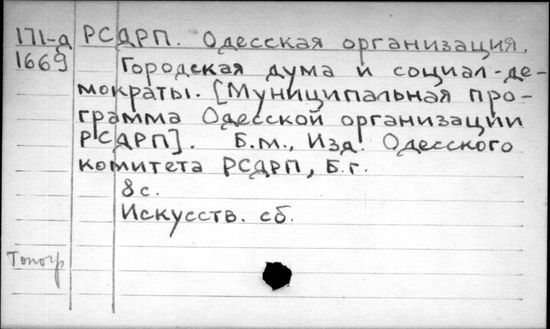 171-д РСДРП. Одесская организация.
1669 Городская дума и социал-де-
мократы. [Муниципальная про-
грамма Одесской организации
РСДРП]. Б.м., Изд. Одесского
комитета РСДРП, Б.г.
8 с.
Искусств. сб.
Топогр